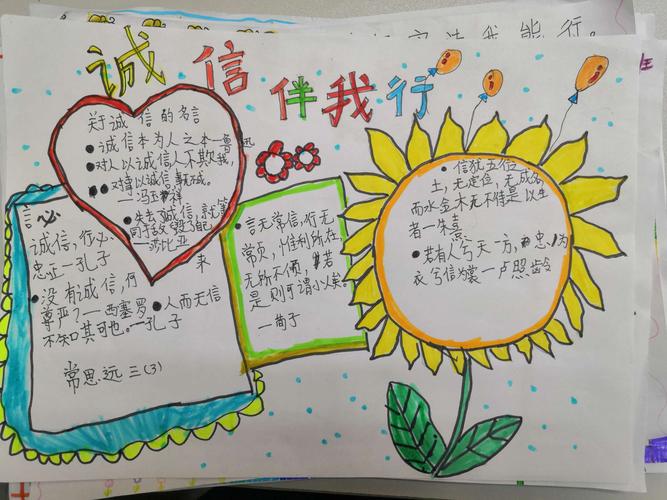 诚信伴我行
关于诚信的名言
诚信本为人之本—鲁迅
对人以诚信人不欺我,
对事以诚信事无不成。
—冯玉祥
失去了诚信,就等
同于敌毁了自己
—莎比亚
言必
诚信,行必
忠正—孔子
没有诚信,何来
尊严?—西塞罗
人而无信
不知其可也。—孔子
常思远 三(3)
言无常信,行无
常贞,惟利所在,
无所不倾,若
是则可谓小人矣。
—荀子
信犹五行之
土,无定位,无成名
而水金木无不待是以生
者—朱熹
若有人兮天一方,忠为
衣兮信为裳—卢照龄
我能行。